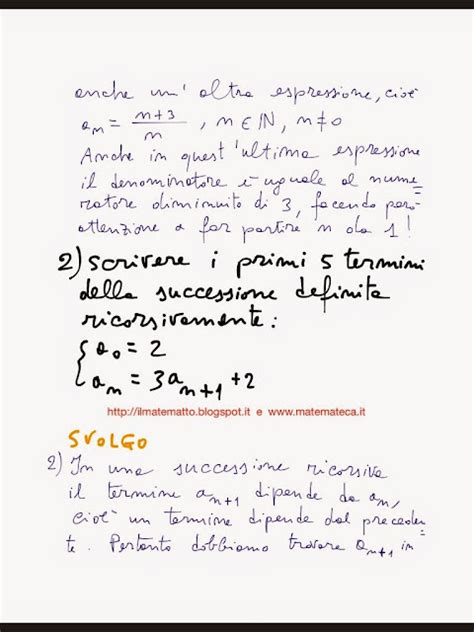 anche un' altra espressione, cioè
aₙ = n+3/n , n ∈ ℕ, n ≠ 0
Anche in quest'ultima espressione
il denominatore è uguale al nume
ratore diminuito di 3, facendo però
attenzione a far partire n da 1!
2) scrivere i primi 5 termini
della successione definita
ricorsivamente:
{a₀ = 2
aₙ = 3aₙ₊₁ + 2
http://ilmatematto.blogspot.it e www.matemateca.it
SVOLGO
2) In una successione ricorsiva
il termine aₙ₊₁ dipende da aₙ,
cioè un termine dipende dal preceden
te. Pertanto dobbiamo trovare aₙ₊₁ in